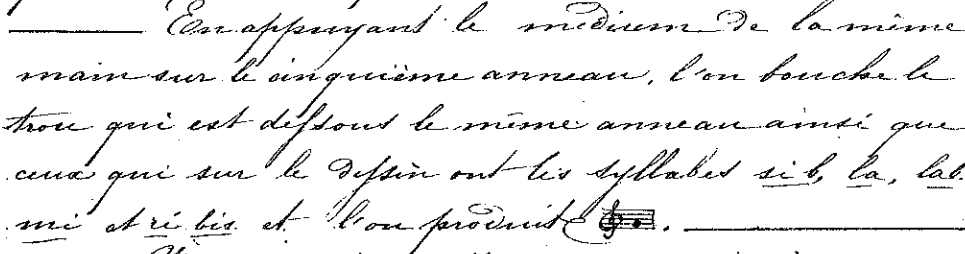 En appuyant le medium de la même
main sur le cinquième anneau, l'on bouche le
trou qui est dessous le même anneau ainsi que
ceux qui sur le dessin ont les syllabes si b, la, lab.
mi et ré bis et l'on produit .